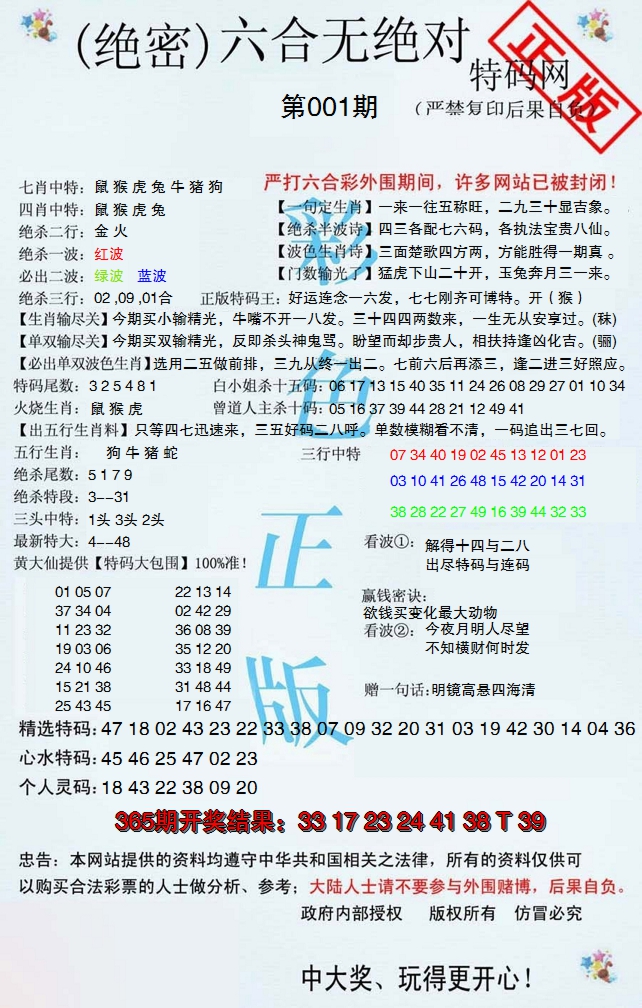 (绝密)六合无绝对
特码网
正版
第001期
(严禁复印后果自负)
严打六合彩外围期间，许多网站已被封闭！
七肖中特：鼠 猴 虎 兔 牛 猪 狗
【一句定生肖】一来一往五称旺，二九三十显吉象。
四肖中特：鼠 猴 虎 兔
【绝杀半波诗】四三各配七六码，各执法宝贵八仙。
绝杀二行：金 火
【波色生肖诗】三面楚歌四方两，方能胜得一期真 。
绝杀一波：红波
【门数输光了】猛虎下山二十开，玉兔奔月三一来。
必出二波：绿波 蓝波
绝杀三行：02 ,09 ,01合
正版特码王：好运连念一六发，七七刚齐可博特。开（ 猴 ）
【生肖输尽关】今期买小输精光，牛嘴不开一八发。三十四四两数来，一生无从安享过。(秣)
【单双输尽关】今期买双输精光，反即杀头神鬼骂。盼望而却步贵人，相扶持逢凶化吉。(骊)
【必出单双波色生肖】选用二五做前排，三九从终一出二。七前六后再添三，逢二进三好照应。
特码尾数：3 2 5 4 8 1
白小姐杀十五码：06 17 13 15 40 35 11 24 26 08 29 27 01 10 34
火烧生肖：鼠 猴 虎
曾道人主杀十码：05 16 37 39 44 28 21 12 49 41
【出五行生肖料】只等四七迅速来，三五好码二八呼。单数模糊看不清，一码追出三七回。
五行生肖： 狗 牛 猪 蛇
三行中特
07 34 40 19 02 45 13 12 01 23
绝杀尾数：5 1 7 9
03 10 41 26 48 15 42 20 14 31
绝杀特段：3--31
三头中特：1头 3头 2头
38 28 22 27 49 16 39 44 32 33
最新特大：4--48
看波①：解得十四与二八
出尽特码与连码
黄大仙提供【特码大包围】100%准！
01 05 07 22 13 14
赢钱密诀：
37 34 04 02 42 29
欲钱买变化最大动物
11 23 32 36 08 39
看波②：今夜月明人尽望
19 03 06 35 12 20
不知横财何时发
24 10 46 33 18 49
15 21 38 31 48 44
赠一句话：明镜高悬四海清
25 43 45 17 16 47
彩色正版
精选特码：47 18 02 43 23 22 33 38 07 09 32 20 31 03 19 42 30 14 04 36
心水特码：45 46 25 47 02 23
个人灵码：18 43 22 38 09 20
365期开奖结果：33 17 23 24 41 38 T 39
忠告：本网站提供的资料均遵守中华共和国相关之法律，所有的资料仅供可
以购买合法彩票的人士做分析、参考；大陆人士请不要参与外围赌博，后果自负。
政府内部授权 版权所有 仿冒必究
中大奖、玩得更开心！